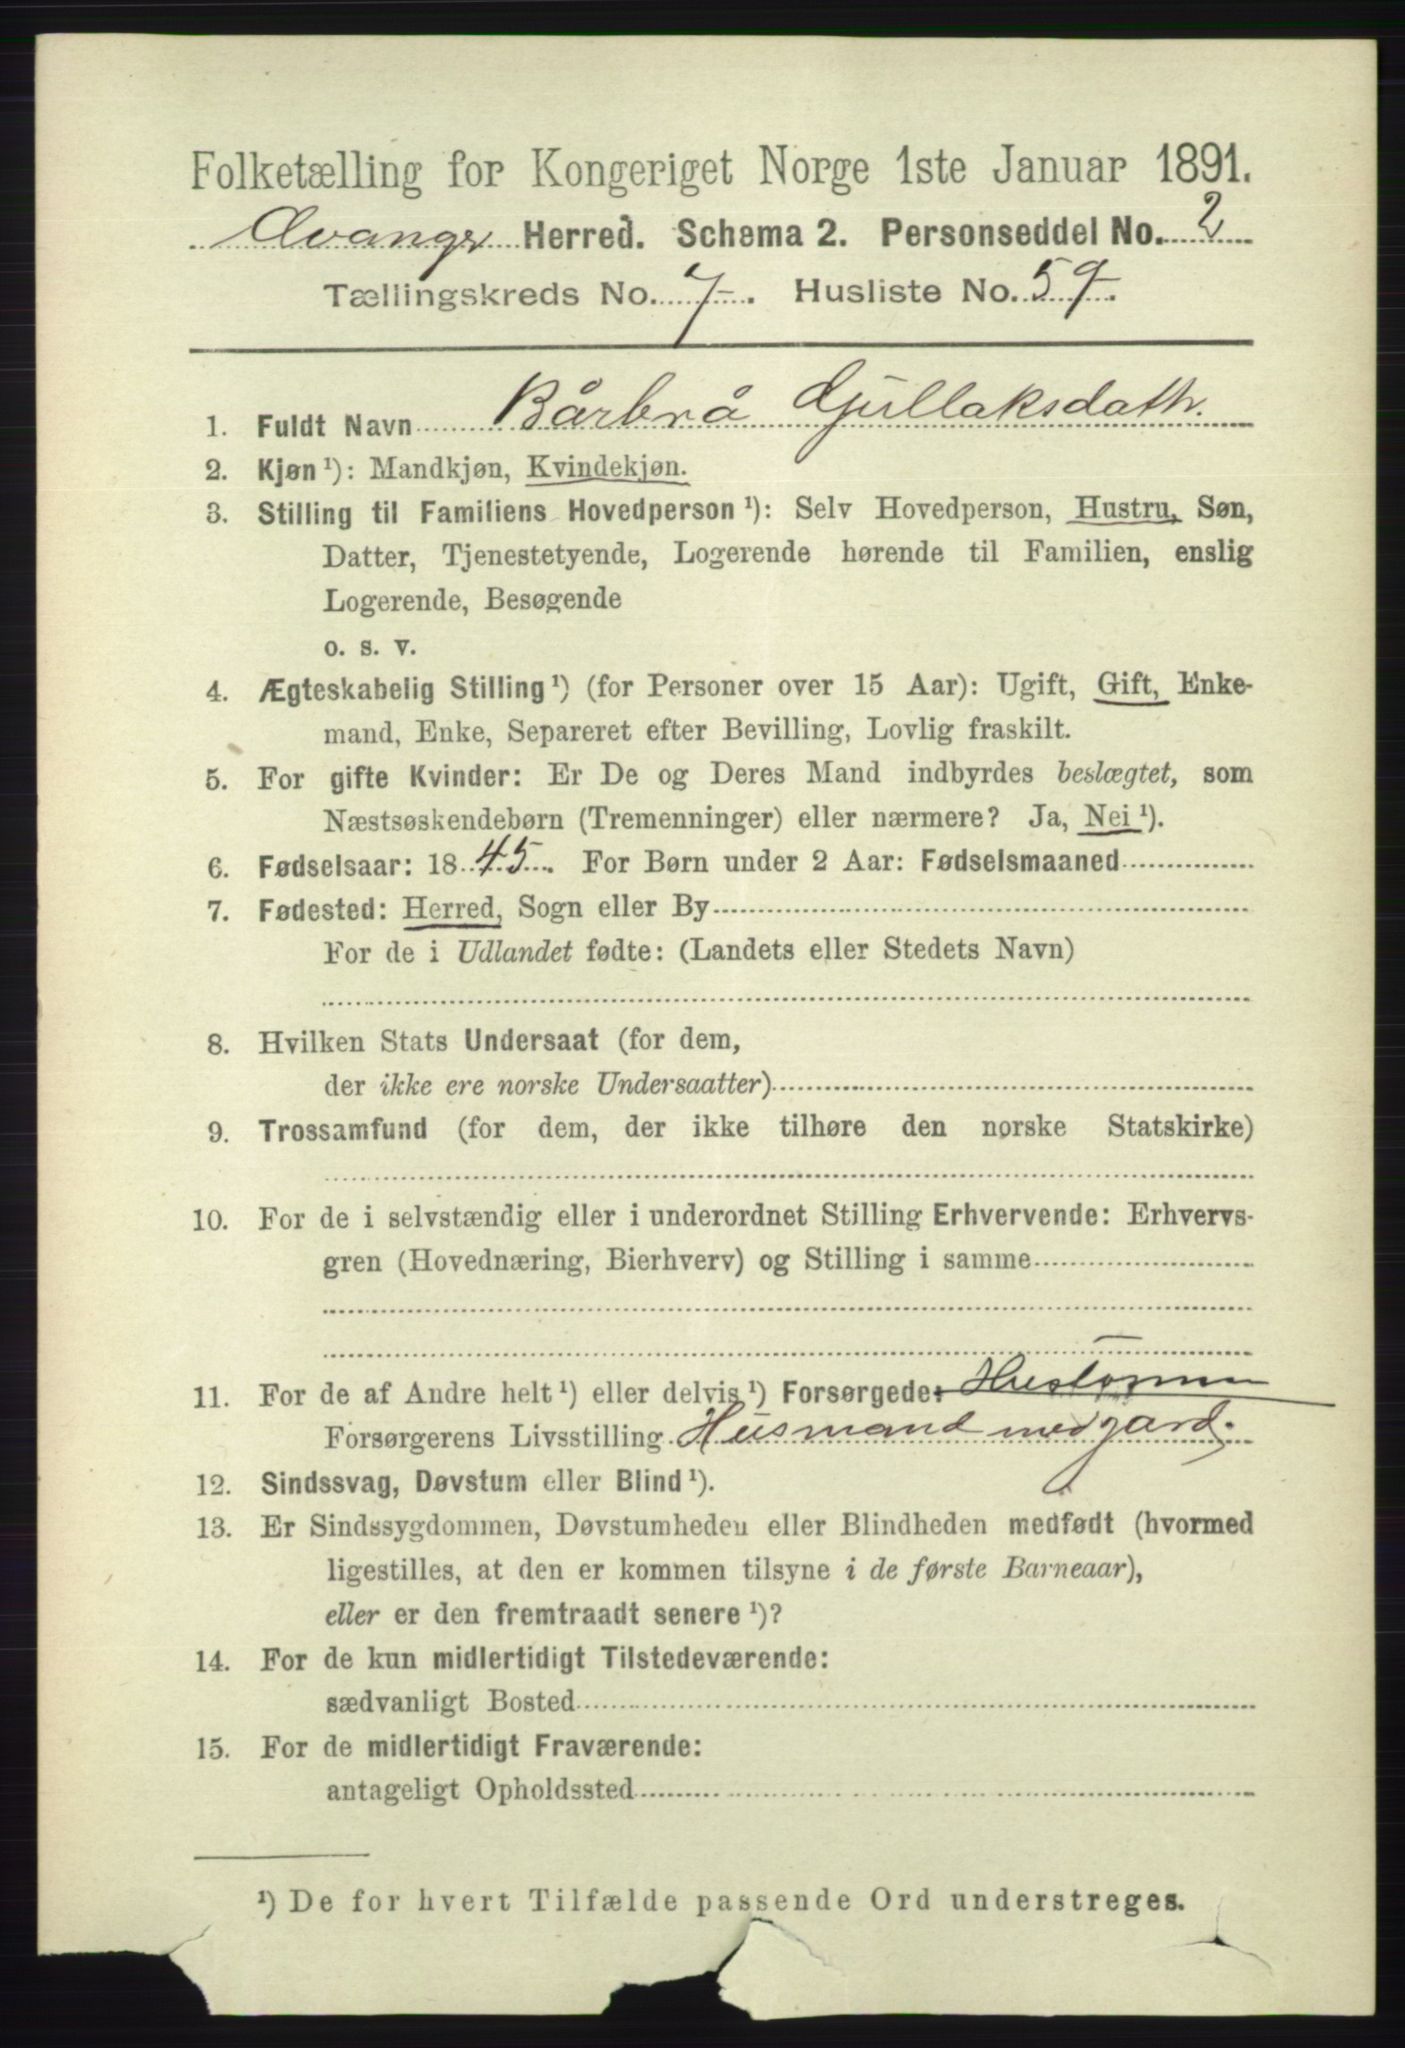 Folketælling for Kongeriget Norge 1ste Januar 1891.
Herred. Schema 2. Personseddel No. 2
Tællingskreds No. 7. Husliste No. 59.
1. Fuldt Navn Bårbrå Gjullaksdattr.
2. Kjøn ¹): Mandkjøn, Kvindekjøn.
3. Stilling til Familiens Hovedperson ¹): Selv Hovedperson, Hustru, Søn,
Datter, Tjenestetyende, Logerende hørende til Familien, enslig
Logerende, Besøgende
o. s. v.
4. Ægteskabelig Stilling ¹) (for Personer over 15 Aar): Ugift, Gift, Enke-
mand, Enke, Separeret efter Bevilling, Lovlig fraskilt.
5. For gifte Kvinder: Er De og Deres Mand indbyrdes beslægtet, som
Næstsøskendebørn (Tremenninger) eller nærmere? Ja, Nei ¹).
6. Fødselsaar: 1845. For Børn under 2 Aar: Fødselsmaaned
7. Fødested: Herred, Sogn eller By
For de i Udlandet fødte: (Landets eller Stedets Navn)
8. Hvilken Stats Undersaat (for dem,
der ikke ere norske Undersaatter)
9. Trossamfund (for dem, der ikke tilhøre den norske Statskirke)
10. For de i selvstændig eller i underordnet Stilling Erhvervende: Erhvervs-
gren (Hovednæring, Bierhverv) og Stilling i samme
11. For de af Andre helt ¹) eller delvis ¹) Forsørgede:
Forsørgerens Livsstilling Husmand med jard.
12. Sindssvag, Døvstum eller Blind ¹).
13. Er Sindssygdommen, Døvstumheden eller Blindheden medfødt (hvormed
ligestilles, at den er kommen tilsyne i de første Barneaar),
eller er den fremtraadt senere ¹)?
14. For de kun midlertidigt Tilstedeværende:
sædvanligt Bosted
15. For de midlertidigt Fraværende:
antageligt Opholdssted
¹) De for hvert Tilfælde passende Ord understreges.